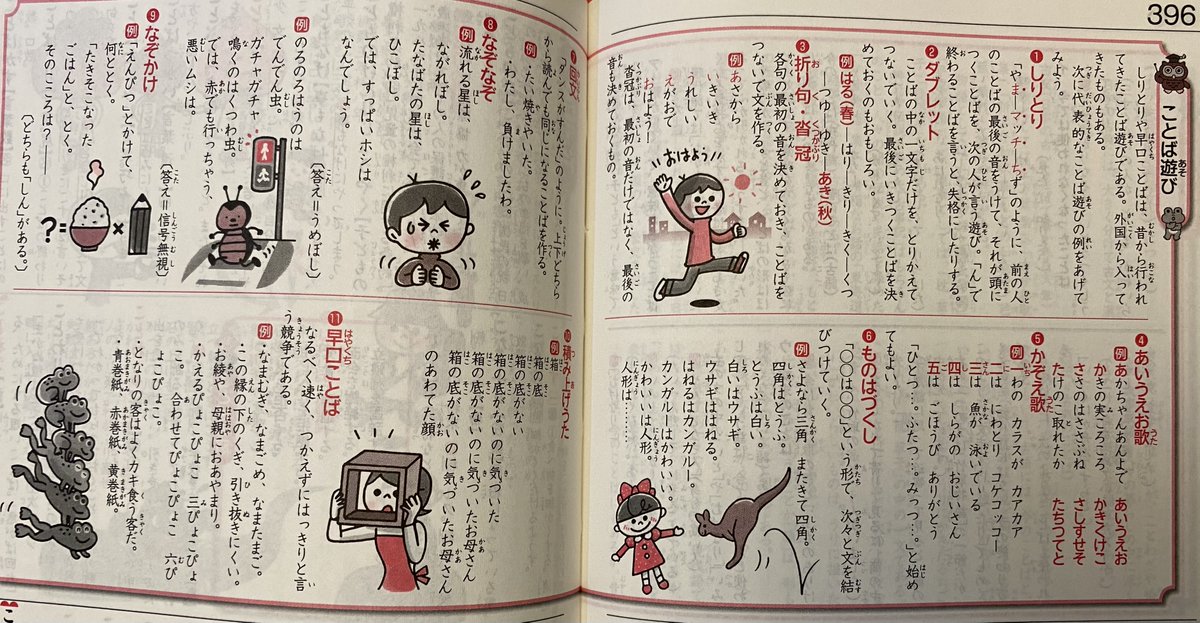 396
ことば遊び
しりとりや早口ことばは、昔から行われ
てきたことば遊びである。外国から入って
きたものもある。
次に代表的なことば遊びの例をあげて
みよう。
❶しりとり
「やま―マッチ―ちず」のように、前の人
のことばの最後の音をうけて、それが頭に
つくことばを、次の人が言う遊び。「ん」で
終わることばを言うと、失格にしたりする。
❷ダブレット
ことばの中の一文字だけを、とりかえて
つないでいく。最後にいきつくことばを決
めておくのもおもしろい。
例 はる(春) はり―きり―きく―くつ
―つゆ―ゆき―あき(秋)
❸折り句・沓冠
各句の最初の音を決めておき、ことばを
つないで文を作る。
例 あさから
いきいき
うれしい
えがおで
おはよう―
沓冠は、最初の音だけではなく、最後の
音も決めておくもの。
おはよう
❹あいうえお歌
例 ああかちゃんあんよで あいうえお
かきの実ころころ かきくけこ
ささのはささぶね さしすせそ
たけのこ取れたか たちつてと
❺かぞえ歌
例 一わの カラスが カアカア
二は にわとり コケコッコー
三は 魚が 泳いでいる
四は しらがの おじいさん
五は ごほうび ありがとう
「ひとつ…。ふたつ…。みっつ…。」と始め
てもよい。
❻ものはつくし
「○○は○○」という形で、次々と文を結
びつけていく。
例 さよなら三角。またきて四角。
四角はとうふ。
とうふは白い。
白いはウサギ。
ウサギははねる。
はねるはカンガルー。
カンガルーはかわいい。
かわいいは人形。
人形は……。
から読んでも同じになることばを作る。
例・たい焼きやいた。
・わたし、負けましたわ。
❽なぞなぞ
例 流れる星は、
ながれぼし。
たなばたの星は
ひこぼし。
では、すっぱいホシは
なんでしょう。
〔答え=うめぼし〕
例 のろのろはうのは
でんでん虫。
ガチャガチャ
鳴くのはくつわ虫。
では、赤でも行っちゃう、
悪いムシは。
〔答え=信号無視〕
❾なぞかけ
例 「えんぴつ」とかけて、
何ととく。
「たきそこなった
ごはん」と、とく。
そのこころは?――
〔どちらも「しん」がある。〕
?=×
❿積み上げうた
例 箱
箱の底
箱の底がない
箱の底がないのに気づいた
箱の底がないのに気づいたお母さん
箱の底がないのに気づいたお母さん
のあわてた顔
⓫早口ことば
なるべく速く、つかえずにはっきりと言
う競争である。
例・なまむぎ、なまごめ、なまたまご。
・この縁の下くぎ、引き抜きにくい。
・お綾や、母親におあやまり。
・かえるぴょこぴょこ 三ぴょこぴょ
こ。合わせてぴょこぴょこ 六ぴ
ょこぴょこ。
・となりの客はよくカキ食う客だ。
・青巻紙、赤巻紙、黄巻紙。
こ